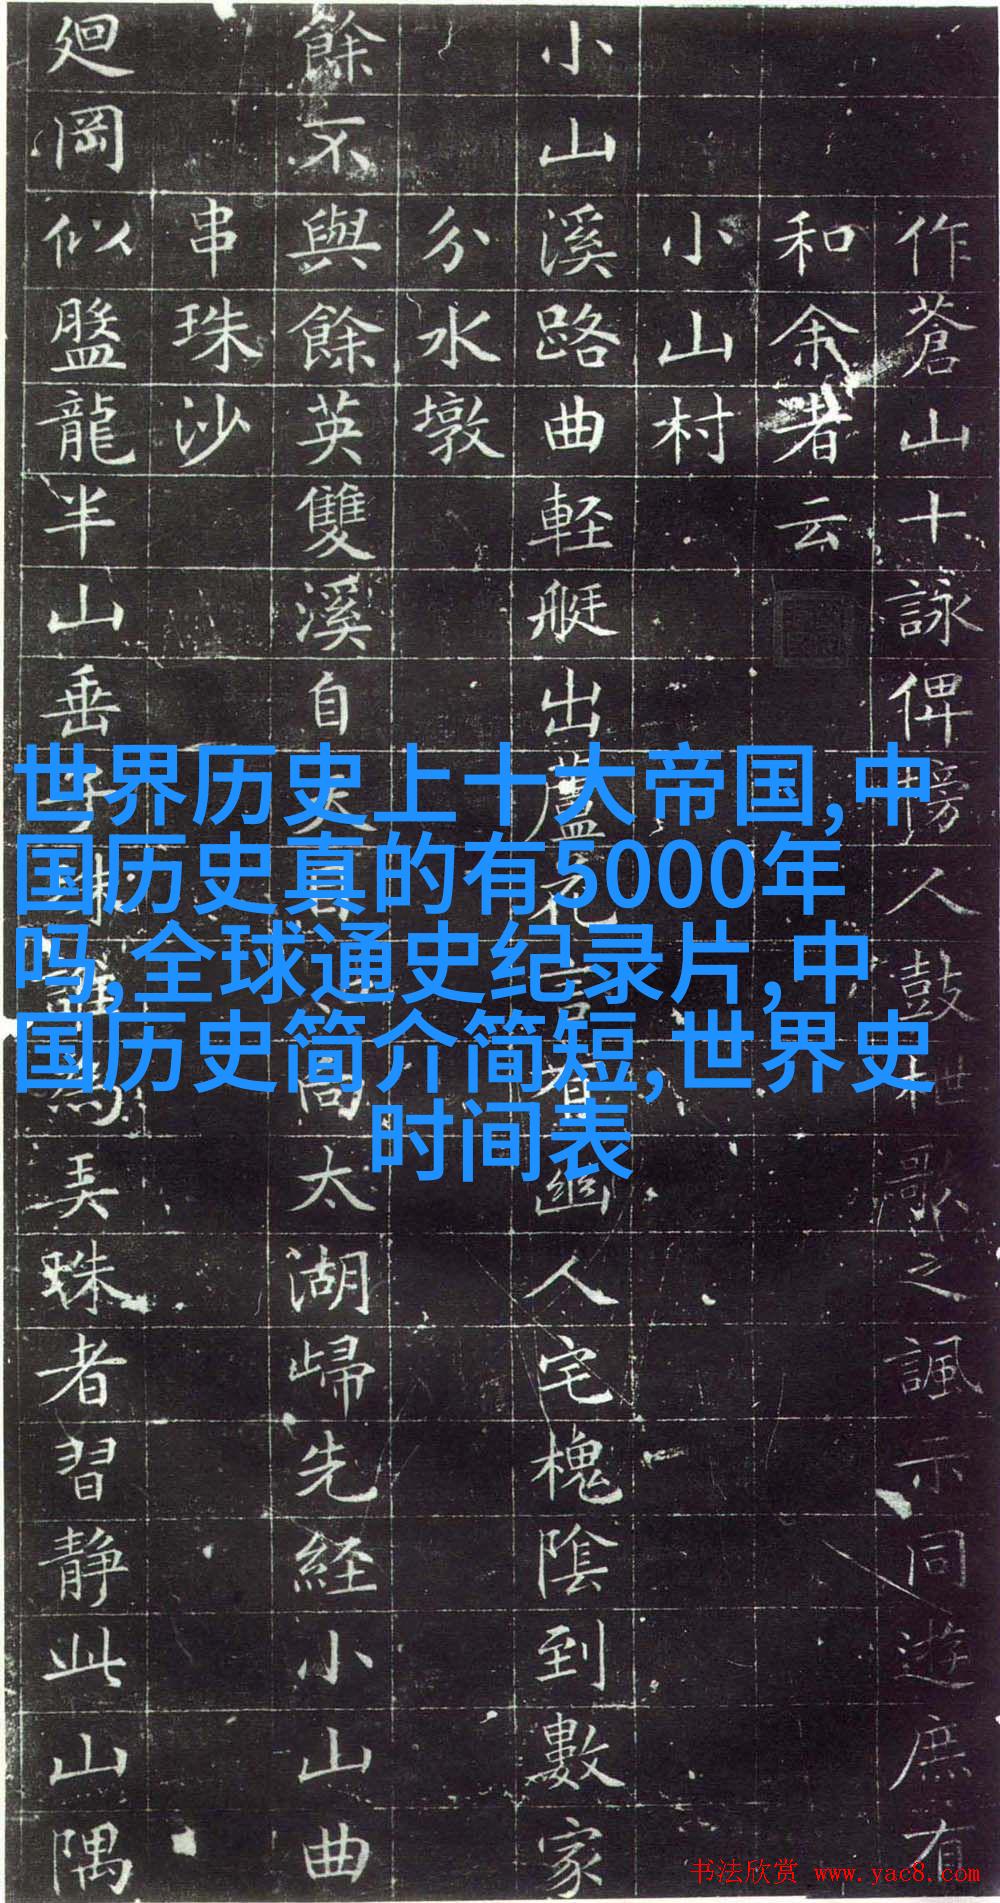 作蒼山十詠俾榜人鼓枻歌之諷示同遊庶有
和余者云
小山村
小山溪路曲軽艇出蘆花幽人宅槐陰到數家
分水墩
餘不與餘英雙溪自天向太湖歸先経小山曲
串珠沙
廻岡似盤龍半山垂子珠誰為弄珠者習静此山隅
世界历史上十大帝国,中
国历史真的有5000年
吗,全球通史纪录片,中
国历史简介简短,世界史
时间表
书法欣赏 www.yac8.com